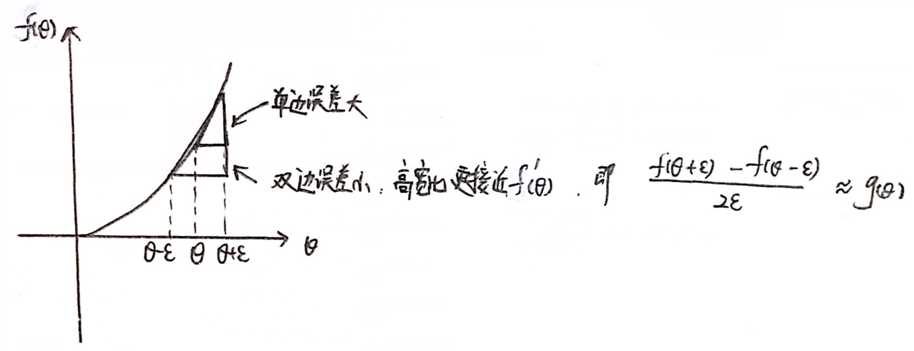 f(θ)
单边误差大
双边误差小,高宽比更接近f'(θ).即 \frac{f(θ+ε)-f(θ-ε)}{2ε} ≈ g(θ)
θ-ε θ θ+ε θ